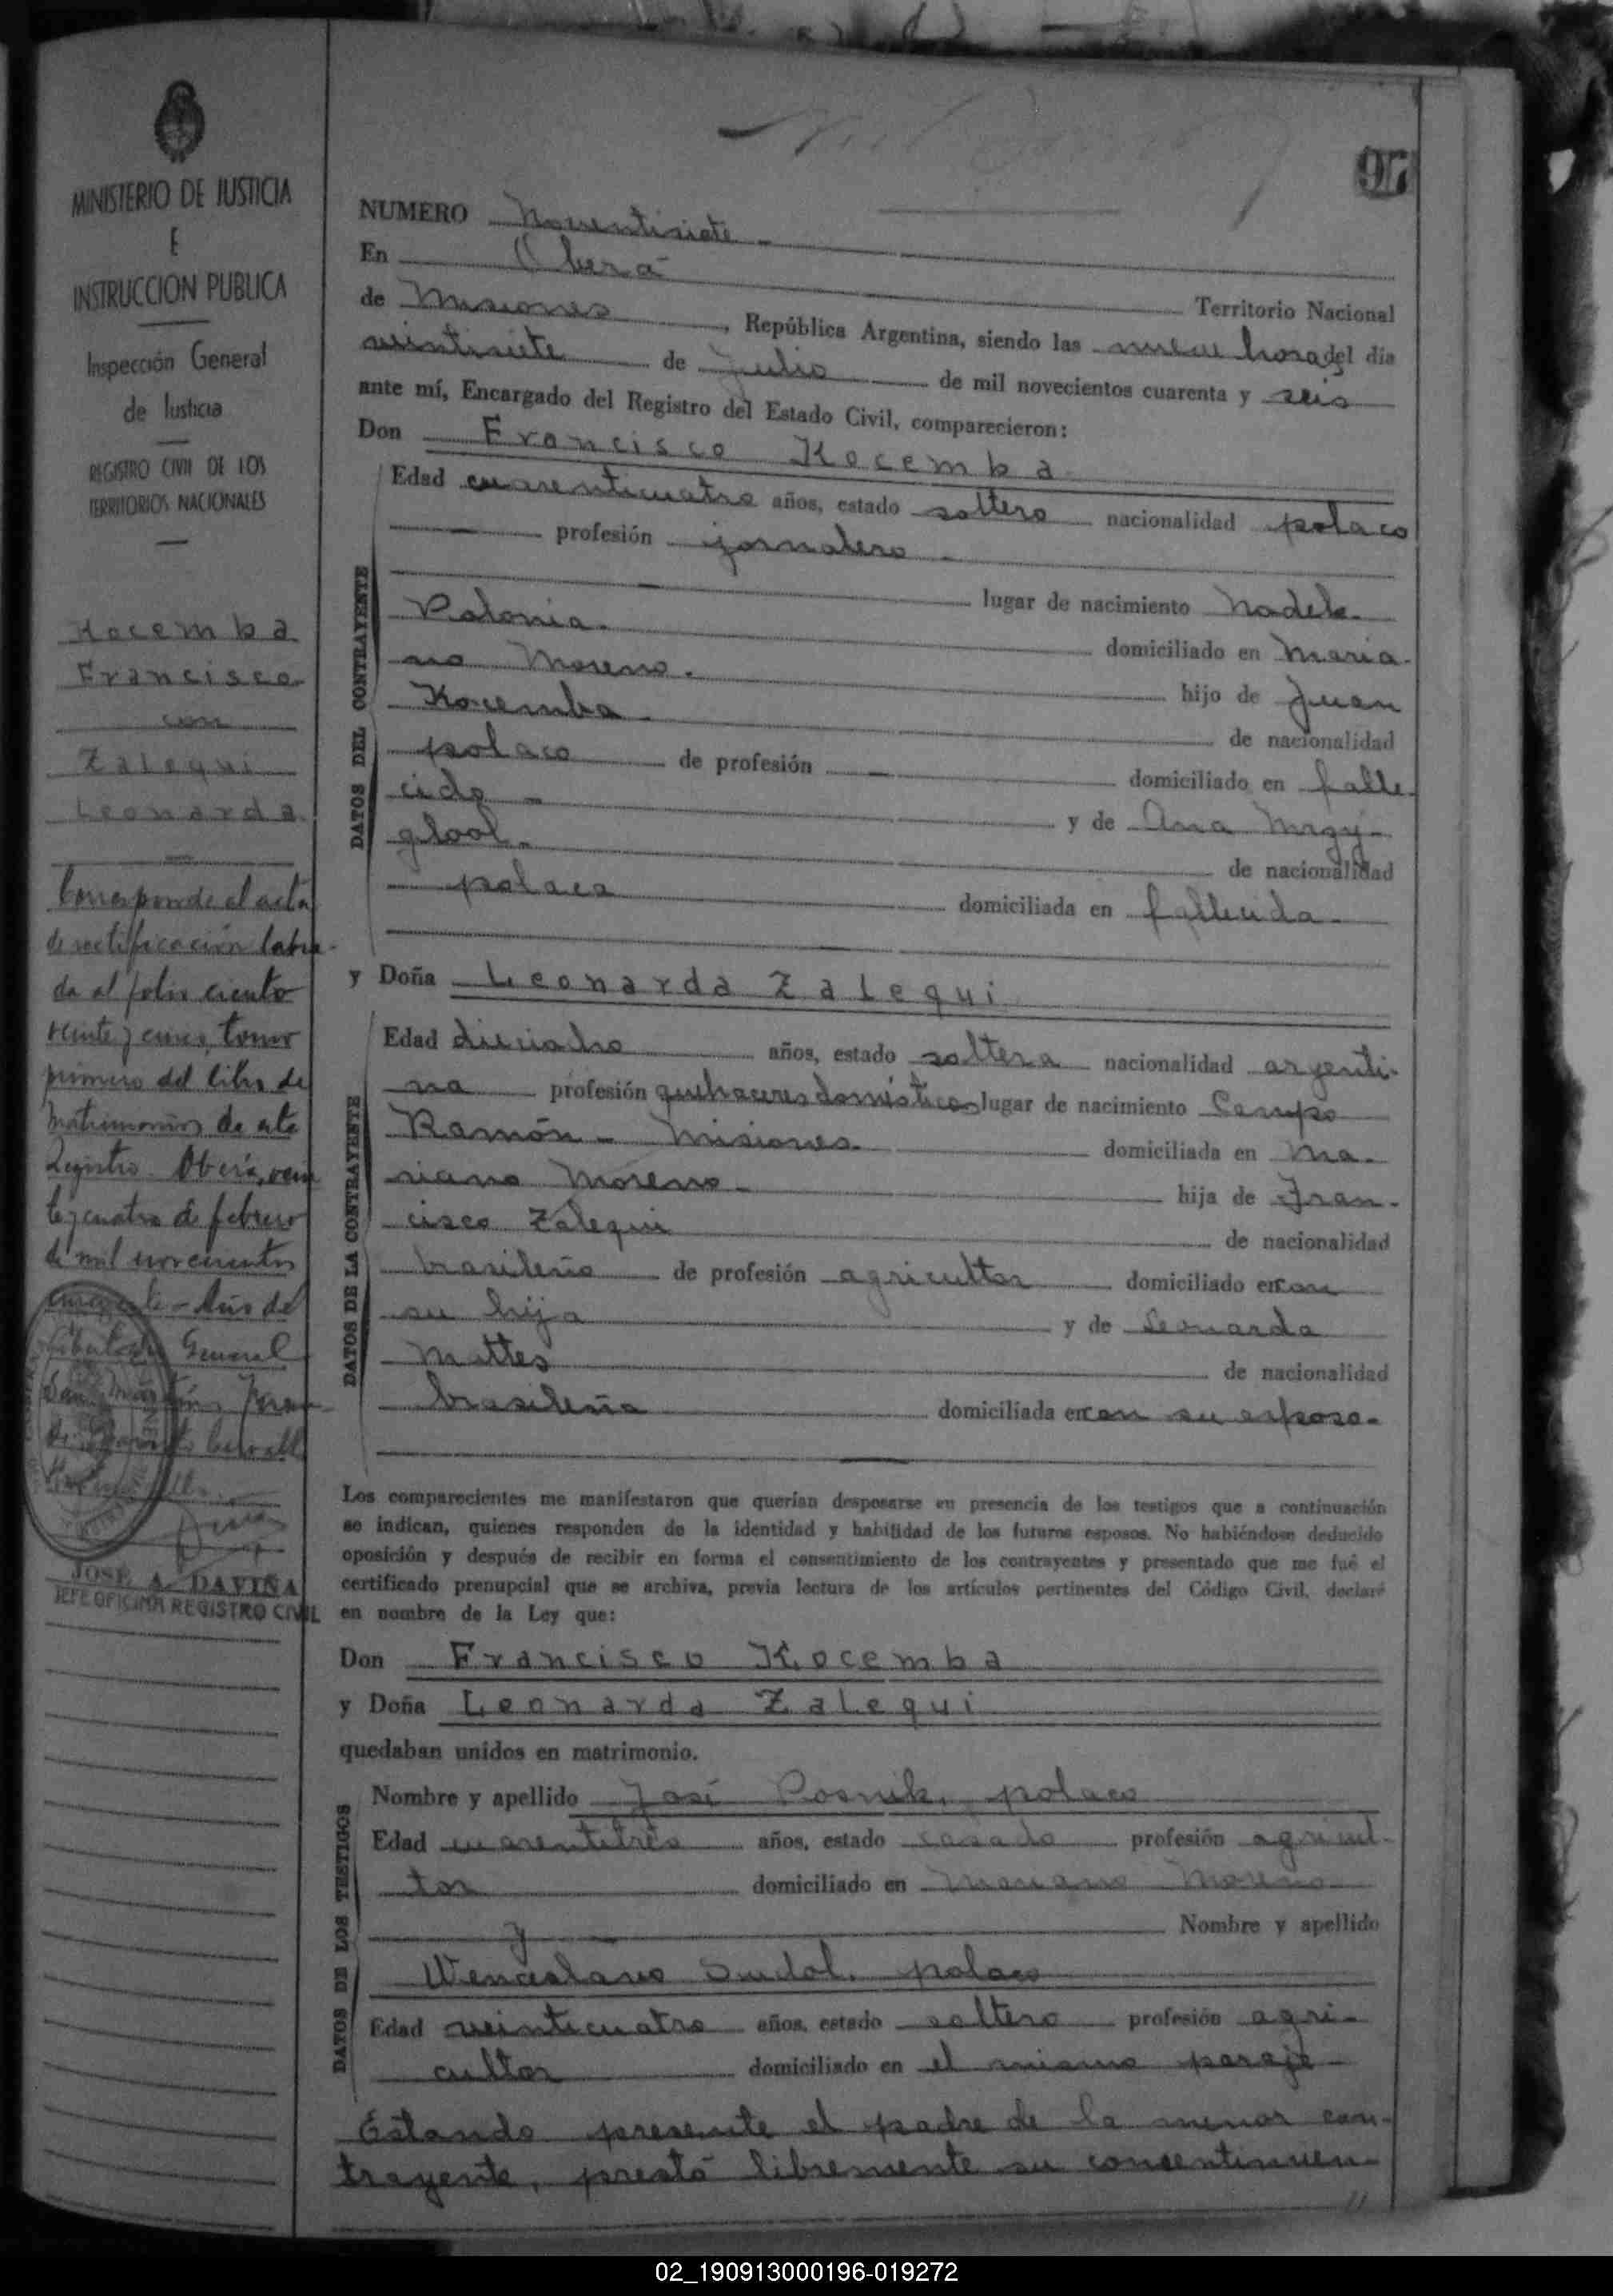 97
MINISTERIO DE JUSTICIA
E
INSTRUCCION PUBLICA
Inspección General
de Justicia
REGISTRO CIVIL DE LOS
TERRITORIOS NACIONALES
Kocemba
Francisco
con
Zalequi
Leonarda
Corresponde el acta
de rectificación labra-
da al folio ciento
veinte y cinco, tomo
primero del libro de
Matrimonios de este
Registro. Oberá, vein
te y cuatro de febrero
de mil novecientos
cincuenta - Año del
Libertador General
San Martín
JOSE A. DAVIÑA
JEFE OFICINA REGISTRO CIVIL
NUMERO Noventisiete -
En Oberá Territorio Nacional
de Misiones, República Argentina, siendo las nueve horas del día
veintisiete de Julio de mil novecientos cuarenta y seis
ante mí, Encargado del Registro del Estado Civil, comparecieron:
Don Francisco Kocemba
DATOS DEL CONTRAYENTE
Edad cuarenticuatro años, estado soltero nacionalidad polaco
profesión jornalero -
lugar de nacimiento Nadele-
Polonia- domiciliado en Maria-
no Moreno- hijo de Juan
Kocemba- de nacionalidad
polaco de profesión — domiciliado en falle-
cido - y de Ana Mrgy-
glool- de nacionalidad
polaca domiciliada en fallecida-
y Doña Leonarda Zalequi
DATOS DE LA CONTRAYENTE
Edad dieciocho años, estado soltera nacionalidad argenti-
na profesión quehaceres domésticos lugar de nacimiento Campo
Ramón - Misiones- domiciliada en Ma-
riano Moreno- hija de Fran-
cisco Zalequi de nacionalidad
brasileño de profesión agricultor domiciliado en con
su hija y de Leonarda
Mattes de nacionalidad
brasileña domiciliada en con su esposo-
Los comparecientes me manifestaron que querían desposarse en presencia de los testigos que a continuación
se indican, quienes responden de la identidad y habilidad de los futuros esposos. No habiéndose deducido
oposición y después de recibir en forma el consentimiento de los contrayentes y presentado que me fué el
certificado prenupcial que se archiva, previa lectura de los artículos pertinentes del Código Civil, declaré
en nombre de la Ley que:
Don Francisco Kocemba
y Doña Leonarda Zalequi
quedaban unidos en matrimonio.
DATOS DE LOS TESTIGOS
Nombre y apellido José Posnik, polaco
Edad cuarentitrés años, estado casado profesión agricul-
tor domiciliado en Mariano Moreno
y Nombre y apellido
Wenceslavo Sudol, polaco
Edad veinticuatro años, estado soltero profesión agri-
cultor domiciliado en el mismo paraje
Estando presente el padre de la menor con-
trayente, prestó libremente su consentimien-
//
02_190913000196-019272